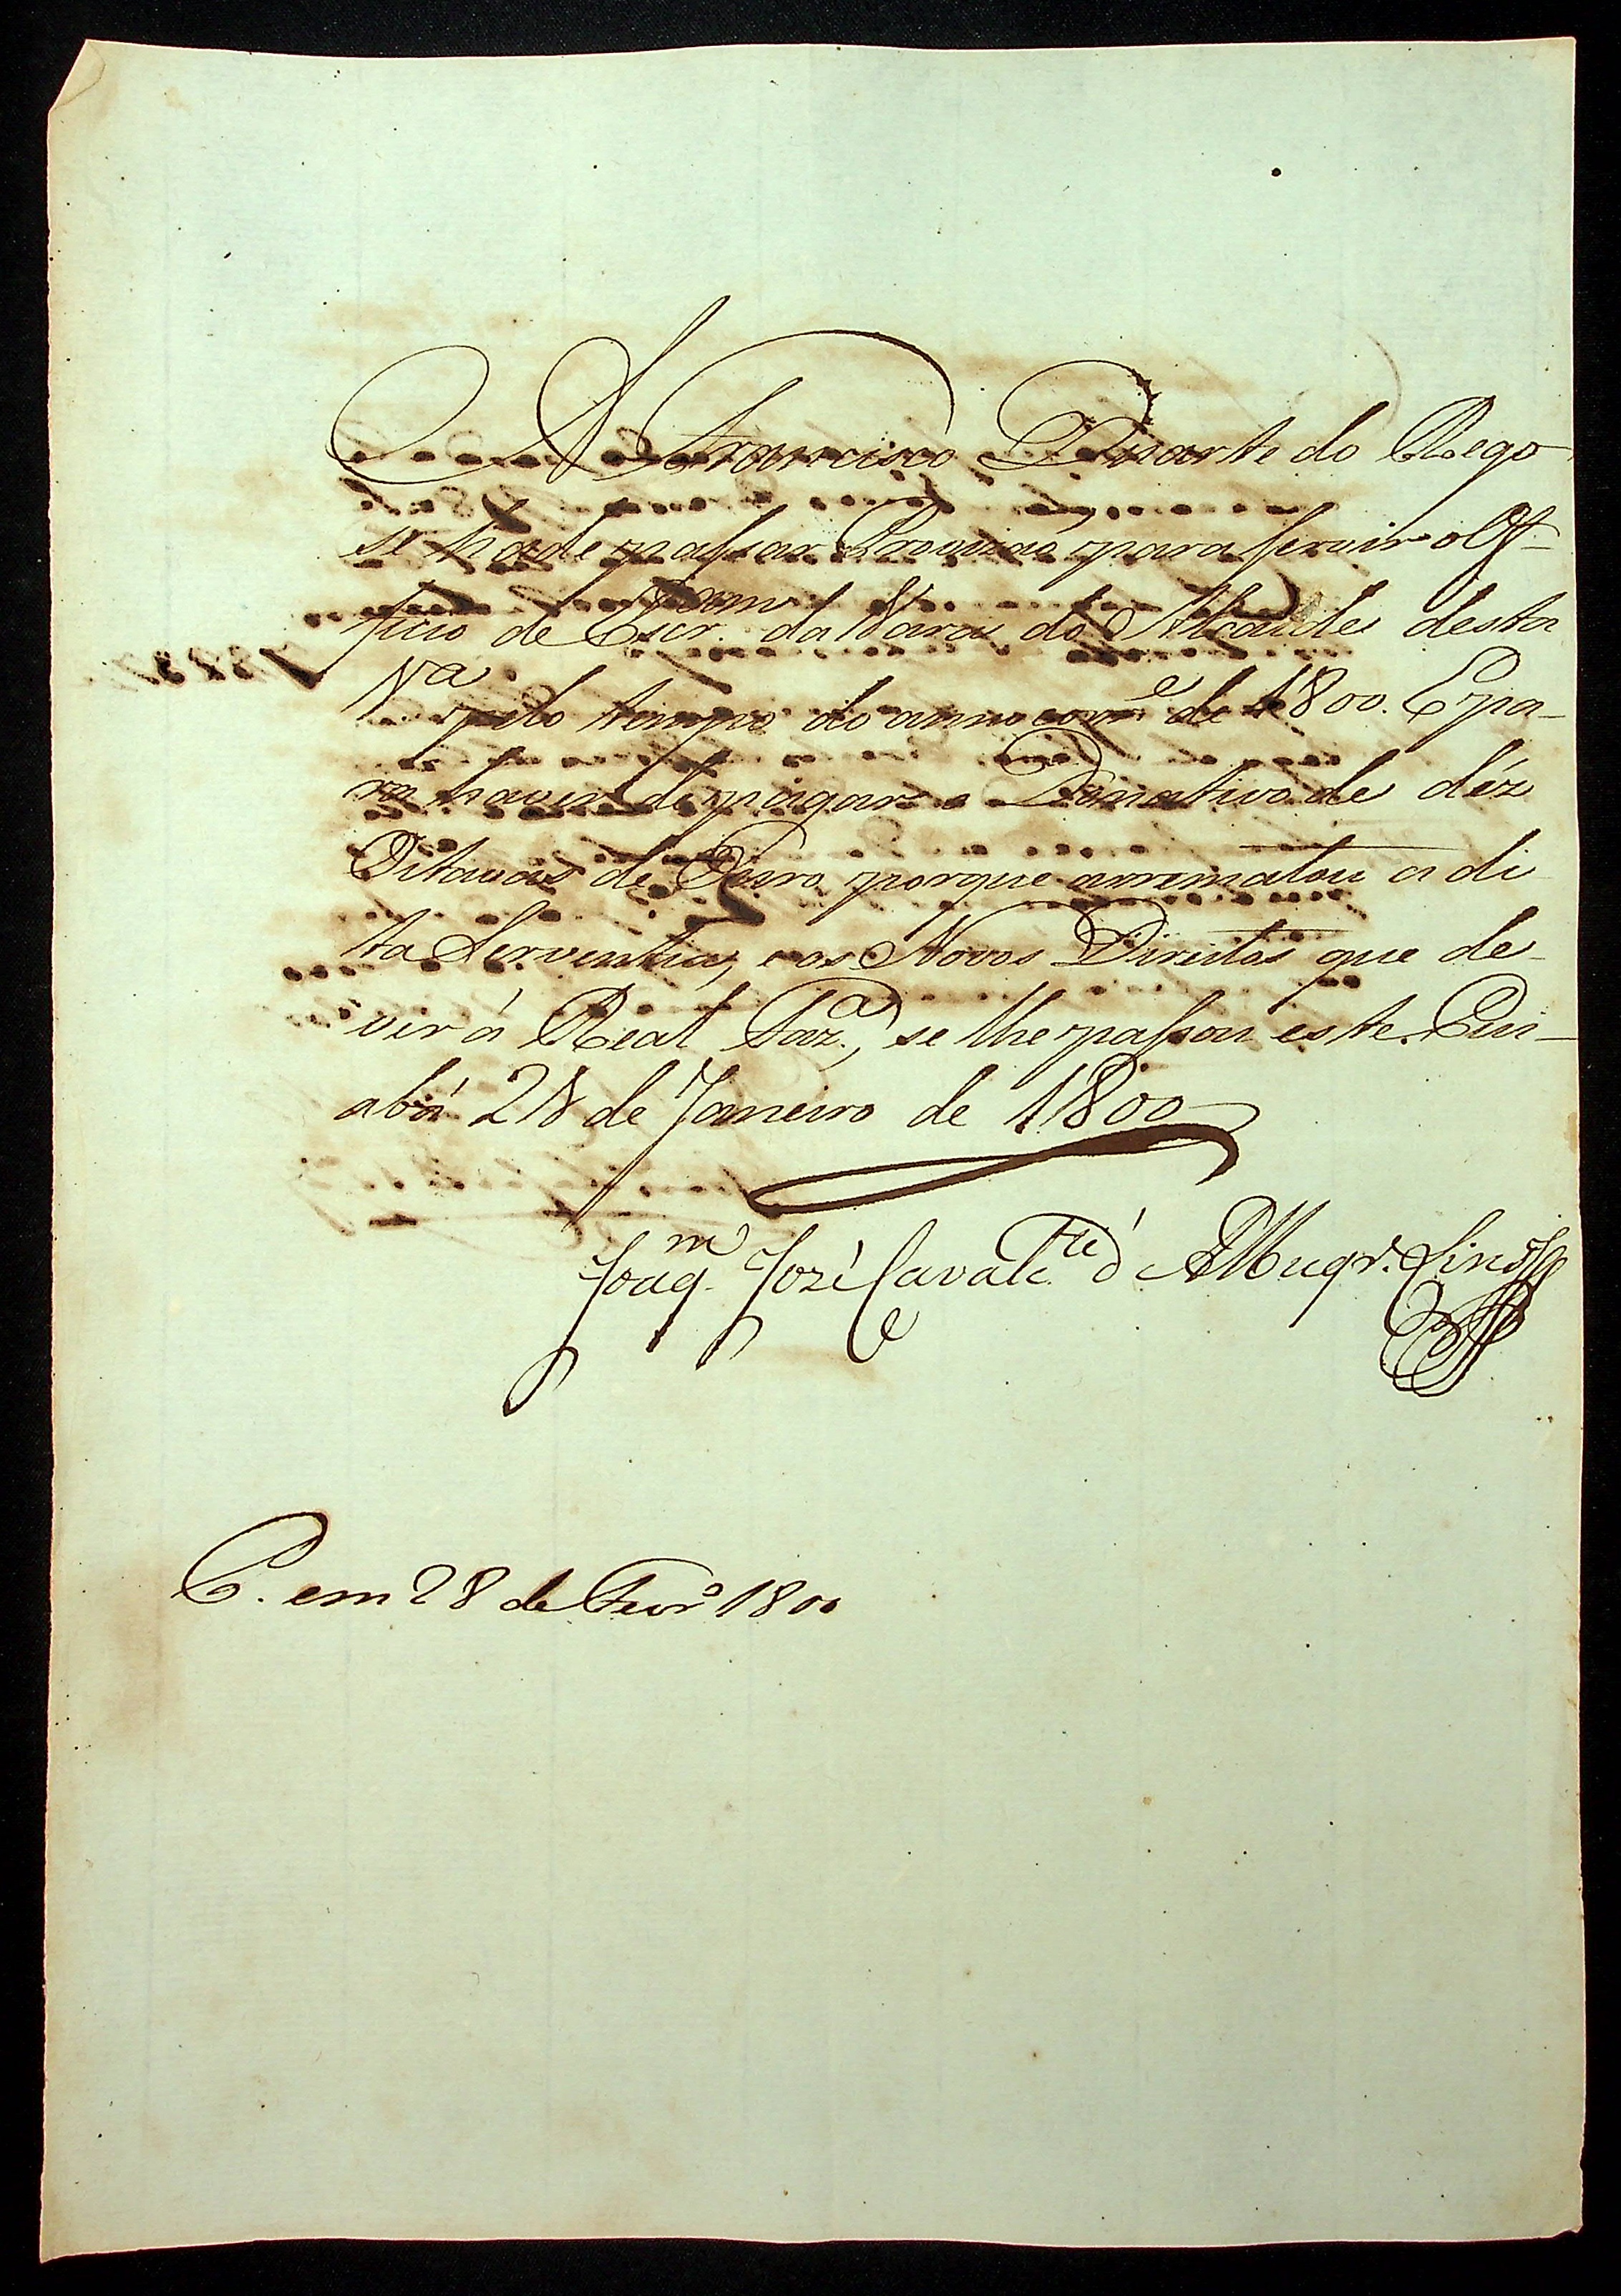 A Francisco Duarte do Rego
se hade passar Provizaõ para servir o Off-
ficio de Escr.am da Vara do Alcaide desta
V.a pelo tempo do anno corr.e de 1800. E pa-
ra haver de pagar o Donativo de déz
Oitavas de Ouro, porque arrematou a di
ta Serventia, e os Novos Direitos que de-
ver á Real Faz.a, se lhe passou este. Cui-
abá 28 de Janeiro de 1800
Joaq.m Jozé Cavalc.te d'Albuqr. Lins
C. em 28 de Fevr.o 1800